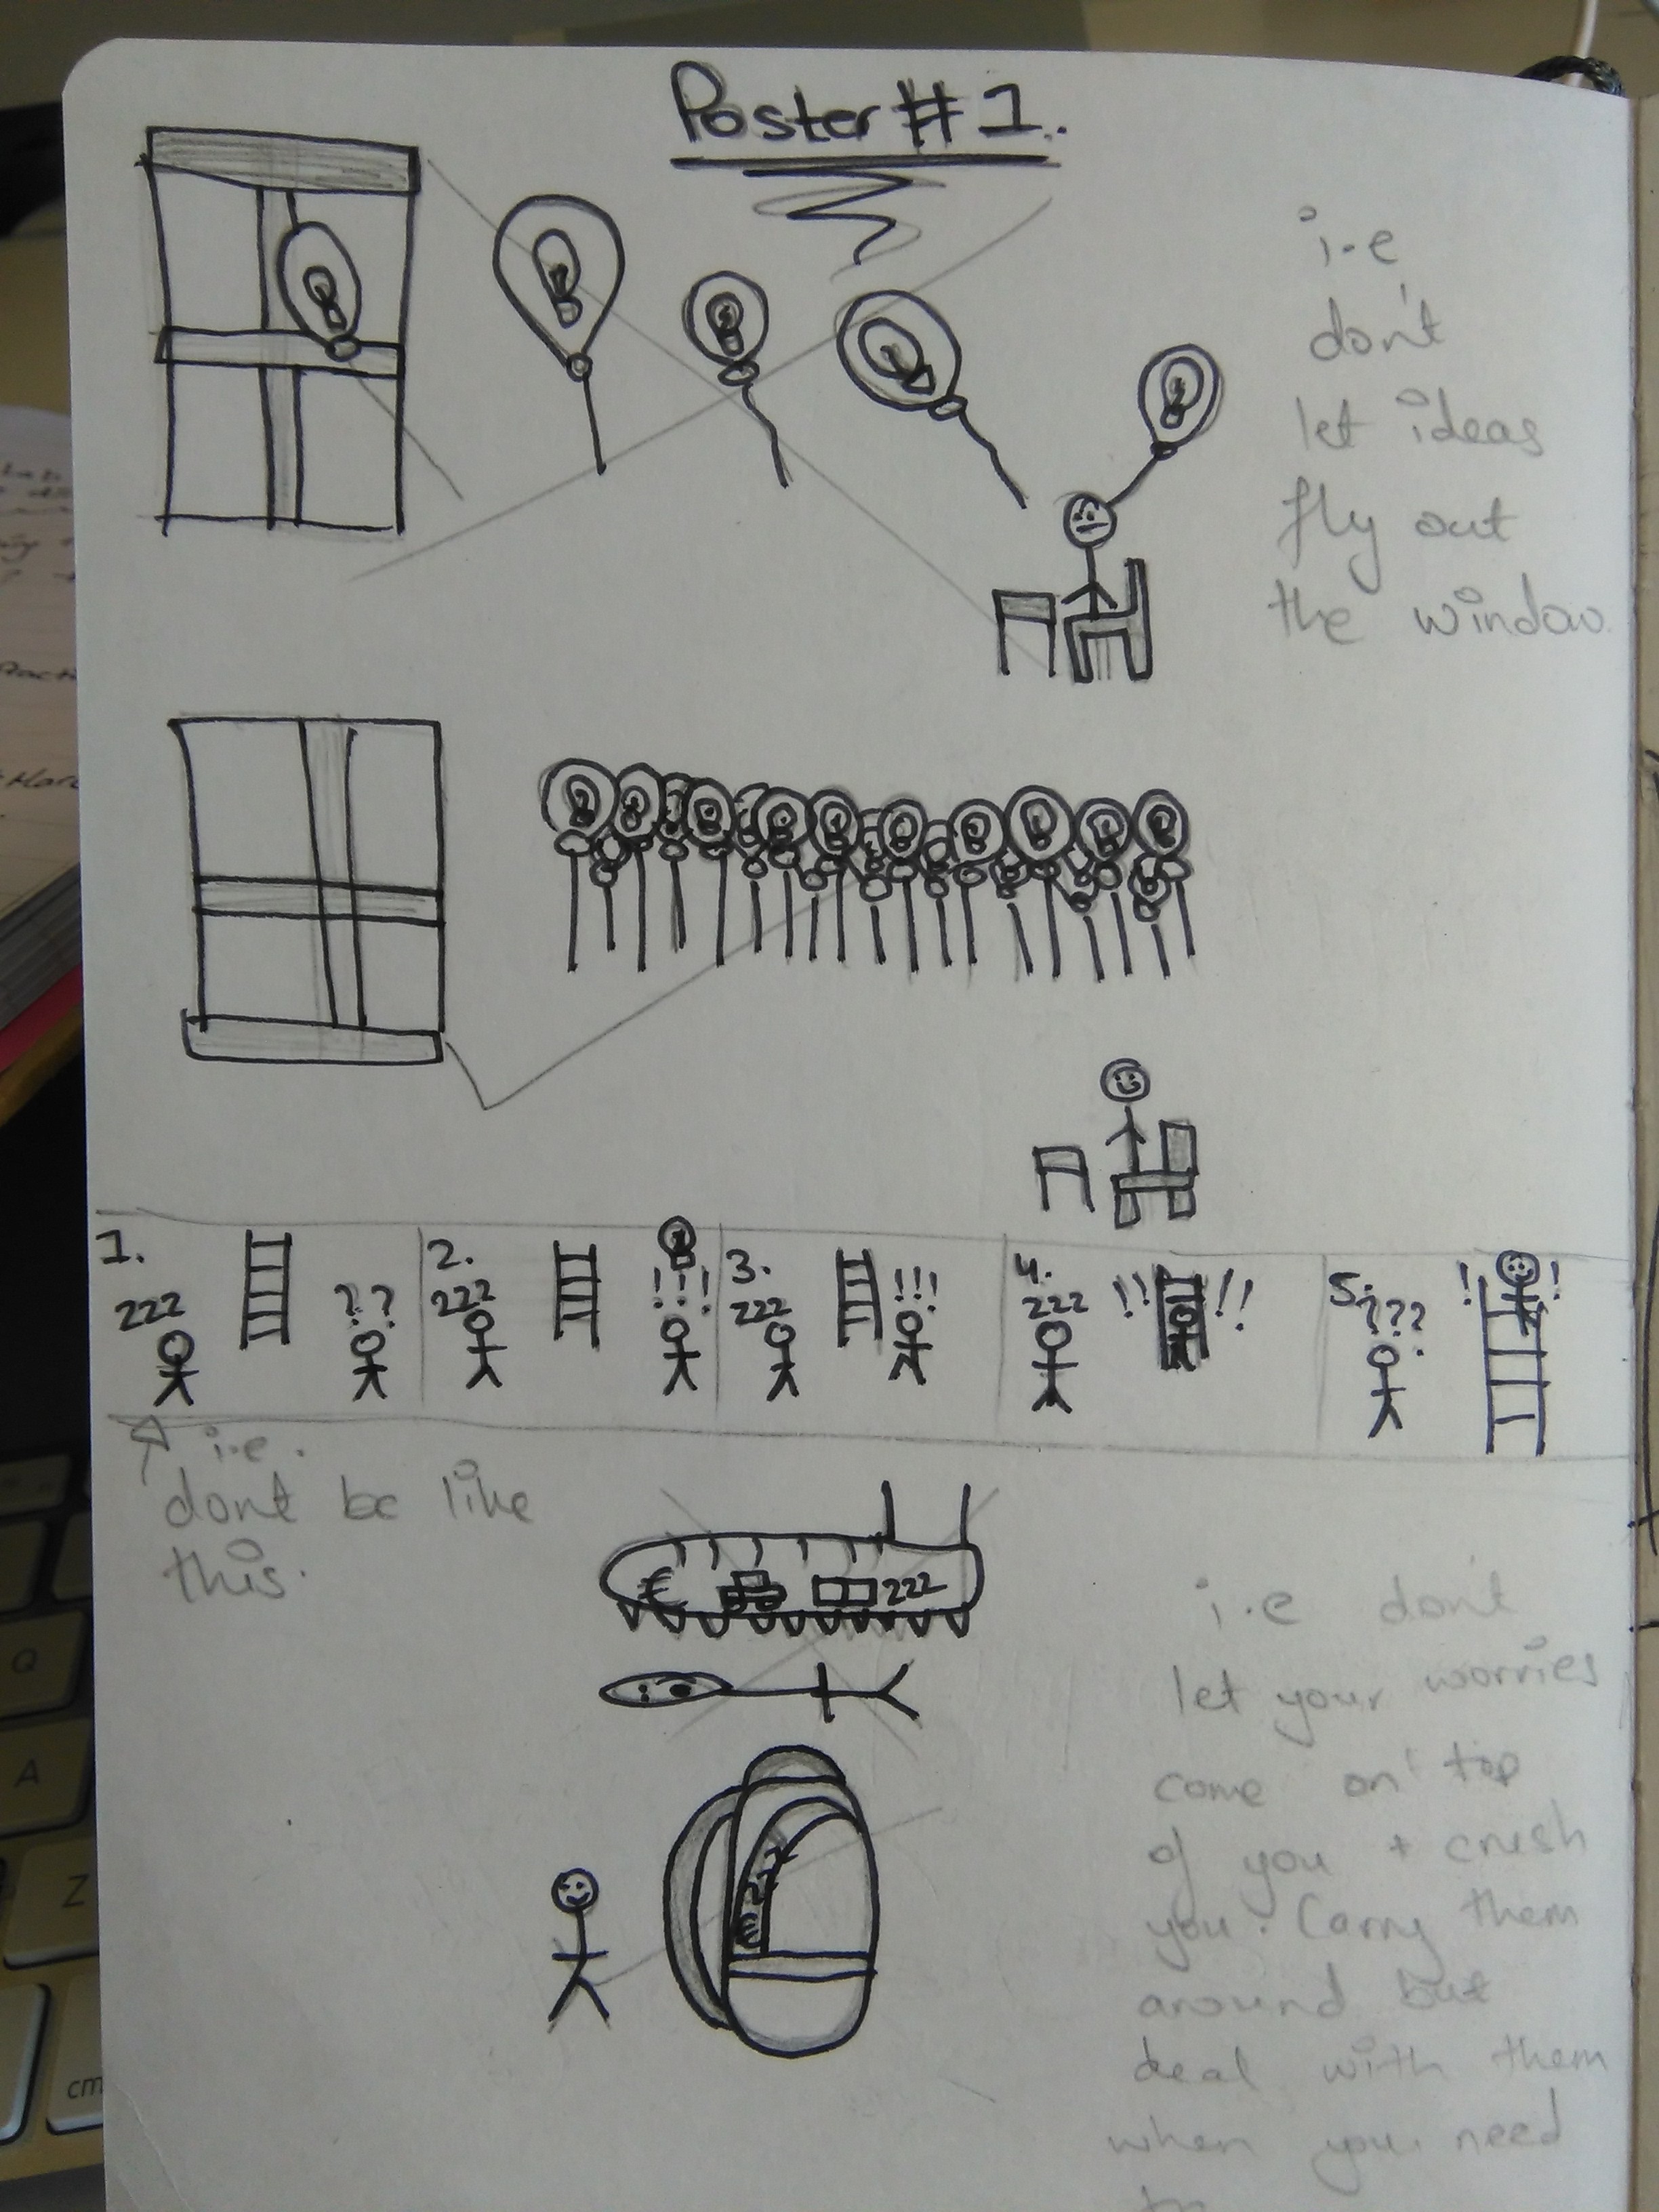 Poster #1.
i.e
don't
let ideas
fly out
the window.
1.
zzz
??
2.
zzz
!!!
3.
zzz
!!!
4.
zzz
!! !!
5.
???
! !
i.e.
dont be like
this.
€
zzz
i.e don't
let your worries
come on top
of you + crush
you. Carry them
around but
deal with them
when you need
to
€
Q
A
Z
cm